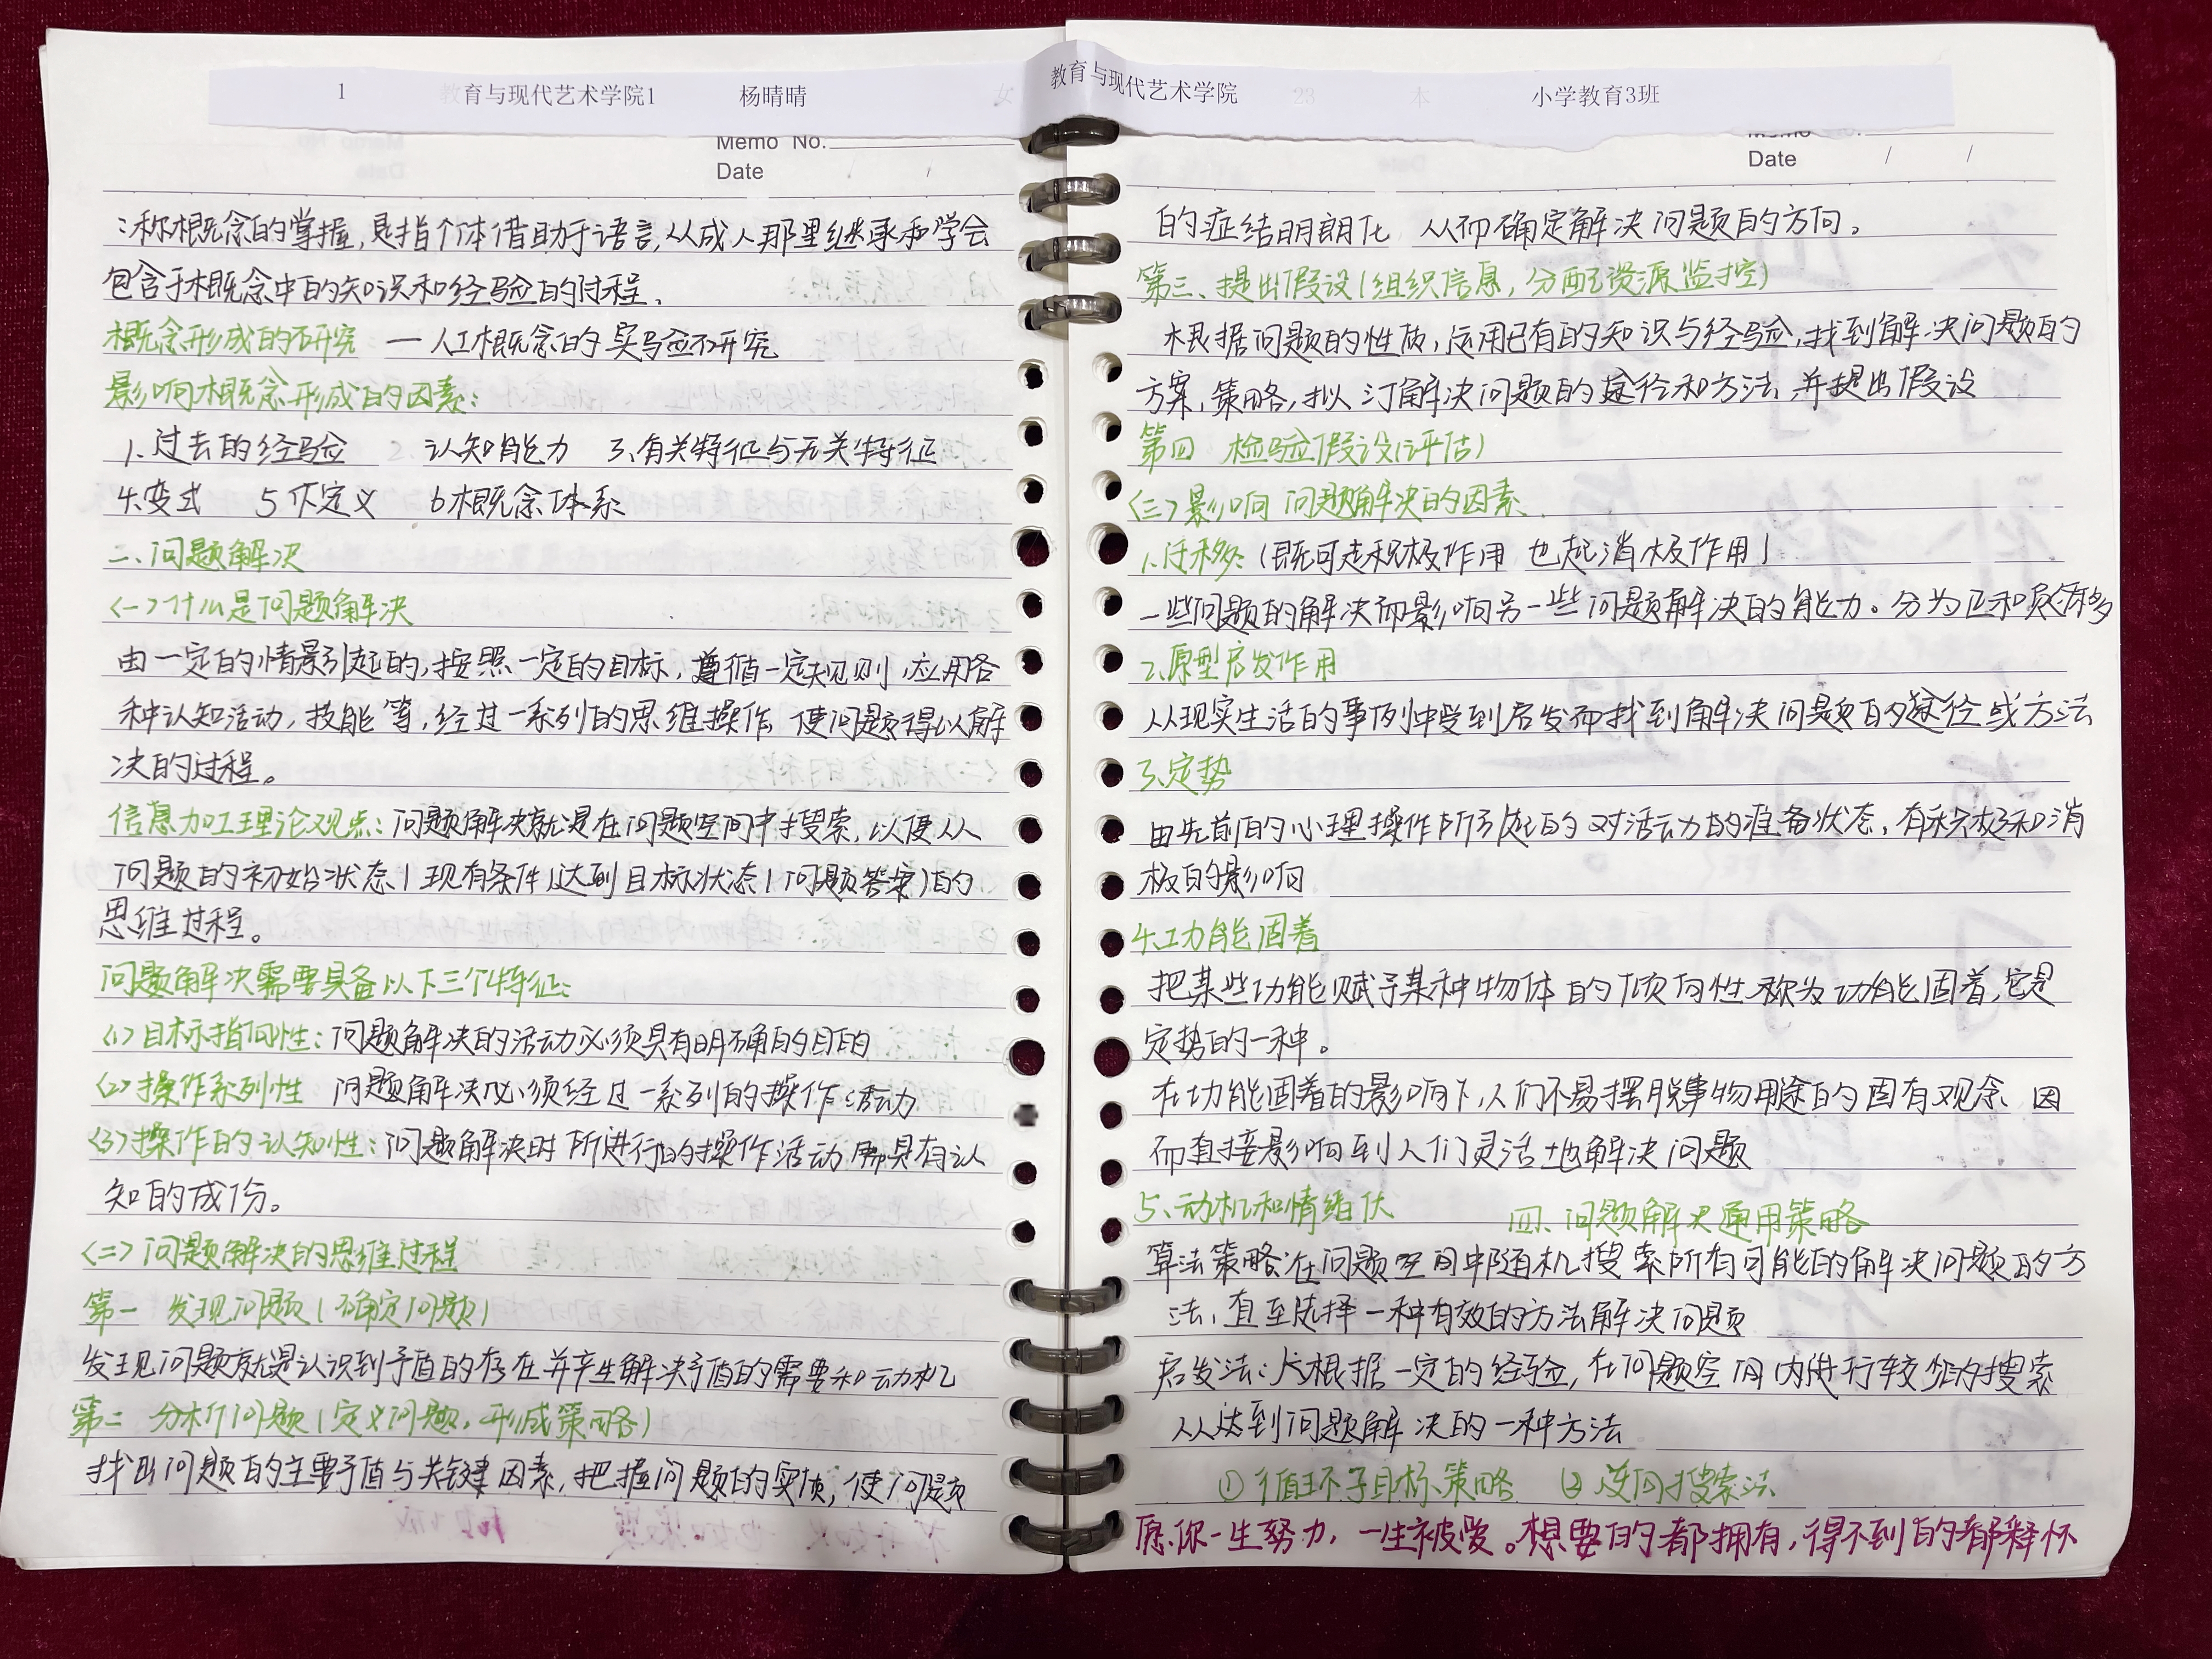 1 教育与现代艺术学院1 杨晴晴 女
Memo No.
Date
:称概念的掌握,是指个体借助于语言,从成人那里继承和学会
包含于概念中的知识和经验的过程.
概念形成的研究 — 人工概念的实验研究
影响概念形成的因素:
1.过去的经验 2. 认知能力 3.有关特征与无关特征
4.变式 5 下定义 6概念体系
二.问题解决
<一>什么是问题解决
由一定的情景引起的,按照一定的目标,遵循一定规则,应用各
种认知活动,技能等,经过一系列的思维操作,使问题得以解
决的过程。
信息加工理论观点:问题解决就是在问题空间中搜索,以便从
问题的初始状态(现有条件)达到目标状态(问题答案)的
思维过程。
问题解决需要具备以下三个特征:
<1>目标指向性:问题解决的活动必须具有明确的目的
<2>操作系列性 问题解决必须经过一系列的操作活动
<3>操作的认知性:问题解决时所进行的操作活动需具有认
知的成份。
<二>问题解决的思维过程
第一 发现问题(确定问题)
发现问题就是认识到矛盾的存在并产生解决矛盾的需要和动机
第二 分析问题(定义问题,形成策略)
找出问题的主要矛盾与关键因素,把握问题的实质,使问题
教育与现代艺术学院 23 本 小学教育3班
Date / /
的症结明朗化 从而确定解决问题的方向。
第三、提出假设(组织信息,分配资源监控)
根据问题的性质,运用已有的知识与经验,找到解决问题的
方案,策略,拟订解决问题的途径和方法,并提出假设
第四 检验假设(评估)
<三>影响问题解决的因素
1.迁移:(既可起积极作用 也起消极作用)
一些问题的解决而影响另一些问题解决的能力。分为正和负迁移
2.原型启发作用
从现实生活的事例中受到启发而找到解决问题的途径或方法
3.定势
由先前的心理操作所引起的对活动的准备状态,有积极和消
极的影响
4.功能固着
把某些功能赋予某种物体的倾向性称为功能固着,它是
定势的一种。
在功能固着的影响下,人们不易摆脱事物用途的固有观念,因
而直接影响到人们灵活地解决问题
5.动机和情绪伏 四、问题解决通用策略
算法策略:在问题空间中随机搜索所有可能的解决问题的方
法,直至选择一种有效的方法解决问题
启发法:人根据一定的经验,在问题空间内进行较少的搜索
以达到问题解决的一种方法
① 循环子目标策略 ② 逆向搜索法
愿你一生努力,一生被爱。想要的都拥有,得不到的都释怀